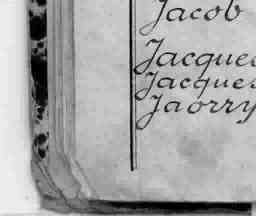 Jacob
Jacques
Jacques
Jaorry